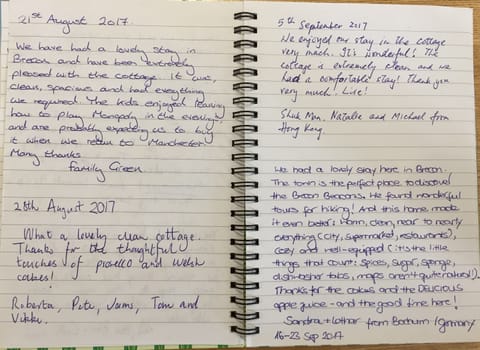 21st August 2017.
We have had a lovely stay in
Brecon and have been extremely
pleased with the cottage. It was
clean, spacious and had everything
we required. The kids enjoyed learning
how to play Monopoly in the evenings
and are probably expecting us to buy
it when we return to Manchester.
Many thanks
Family Green
28th August 2017
What a lovely clean cottage.
Thanks for the thoughtful
touches of prosecco and welsh
cakes!
Roberta, Pete, James, Tom and
5th September 2017
We enjoyed our stay in the cottage
very much. It's wonderful! The
cottage is extremely clean and we
had a comfortable stay! Thank you
very much!
Shuk Man, Natalie and Michael from
Hong Kong.
We had a lovely stay here in Brecon.
The town is the perfect place to discover
the Brecon Beacons. We found wonderful
tours for hiking! And this home made
it even better: Warm, clean, near to nearly
everything (city, supermarket, restaurants),
cosy and well-equipped (it's the little
things that count: spices, sugar, sponge,
dishwasher tabs, maps aren't quite natural).
Thanks for the cakes and the DELICIOUS
apple juice - and the good time here!
Sandra + Lothar from Bochum (Germany)
16-23 Sep 2017